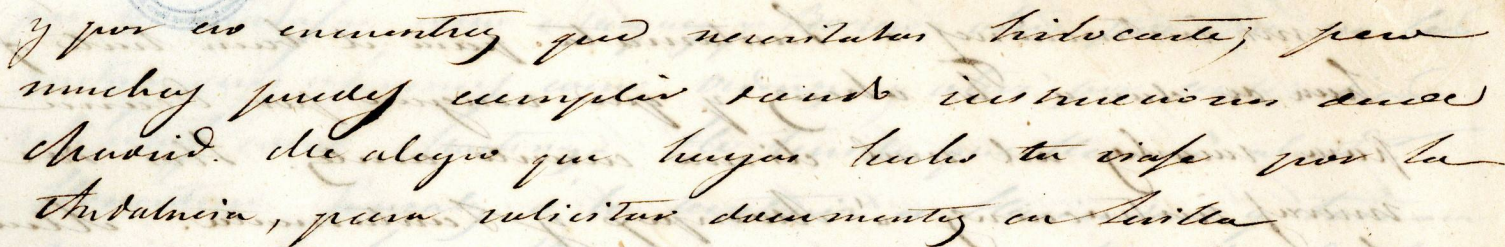 y por eso encuentras que necesitabas histocartes, pero
muchas puedes cumplir siendo instrucciones desde
Madrid. Me alegro que hayas hecho tu viaje por la
Andalucia, para solicitar documentos en Sevilla